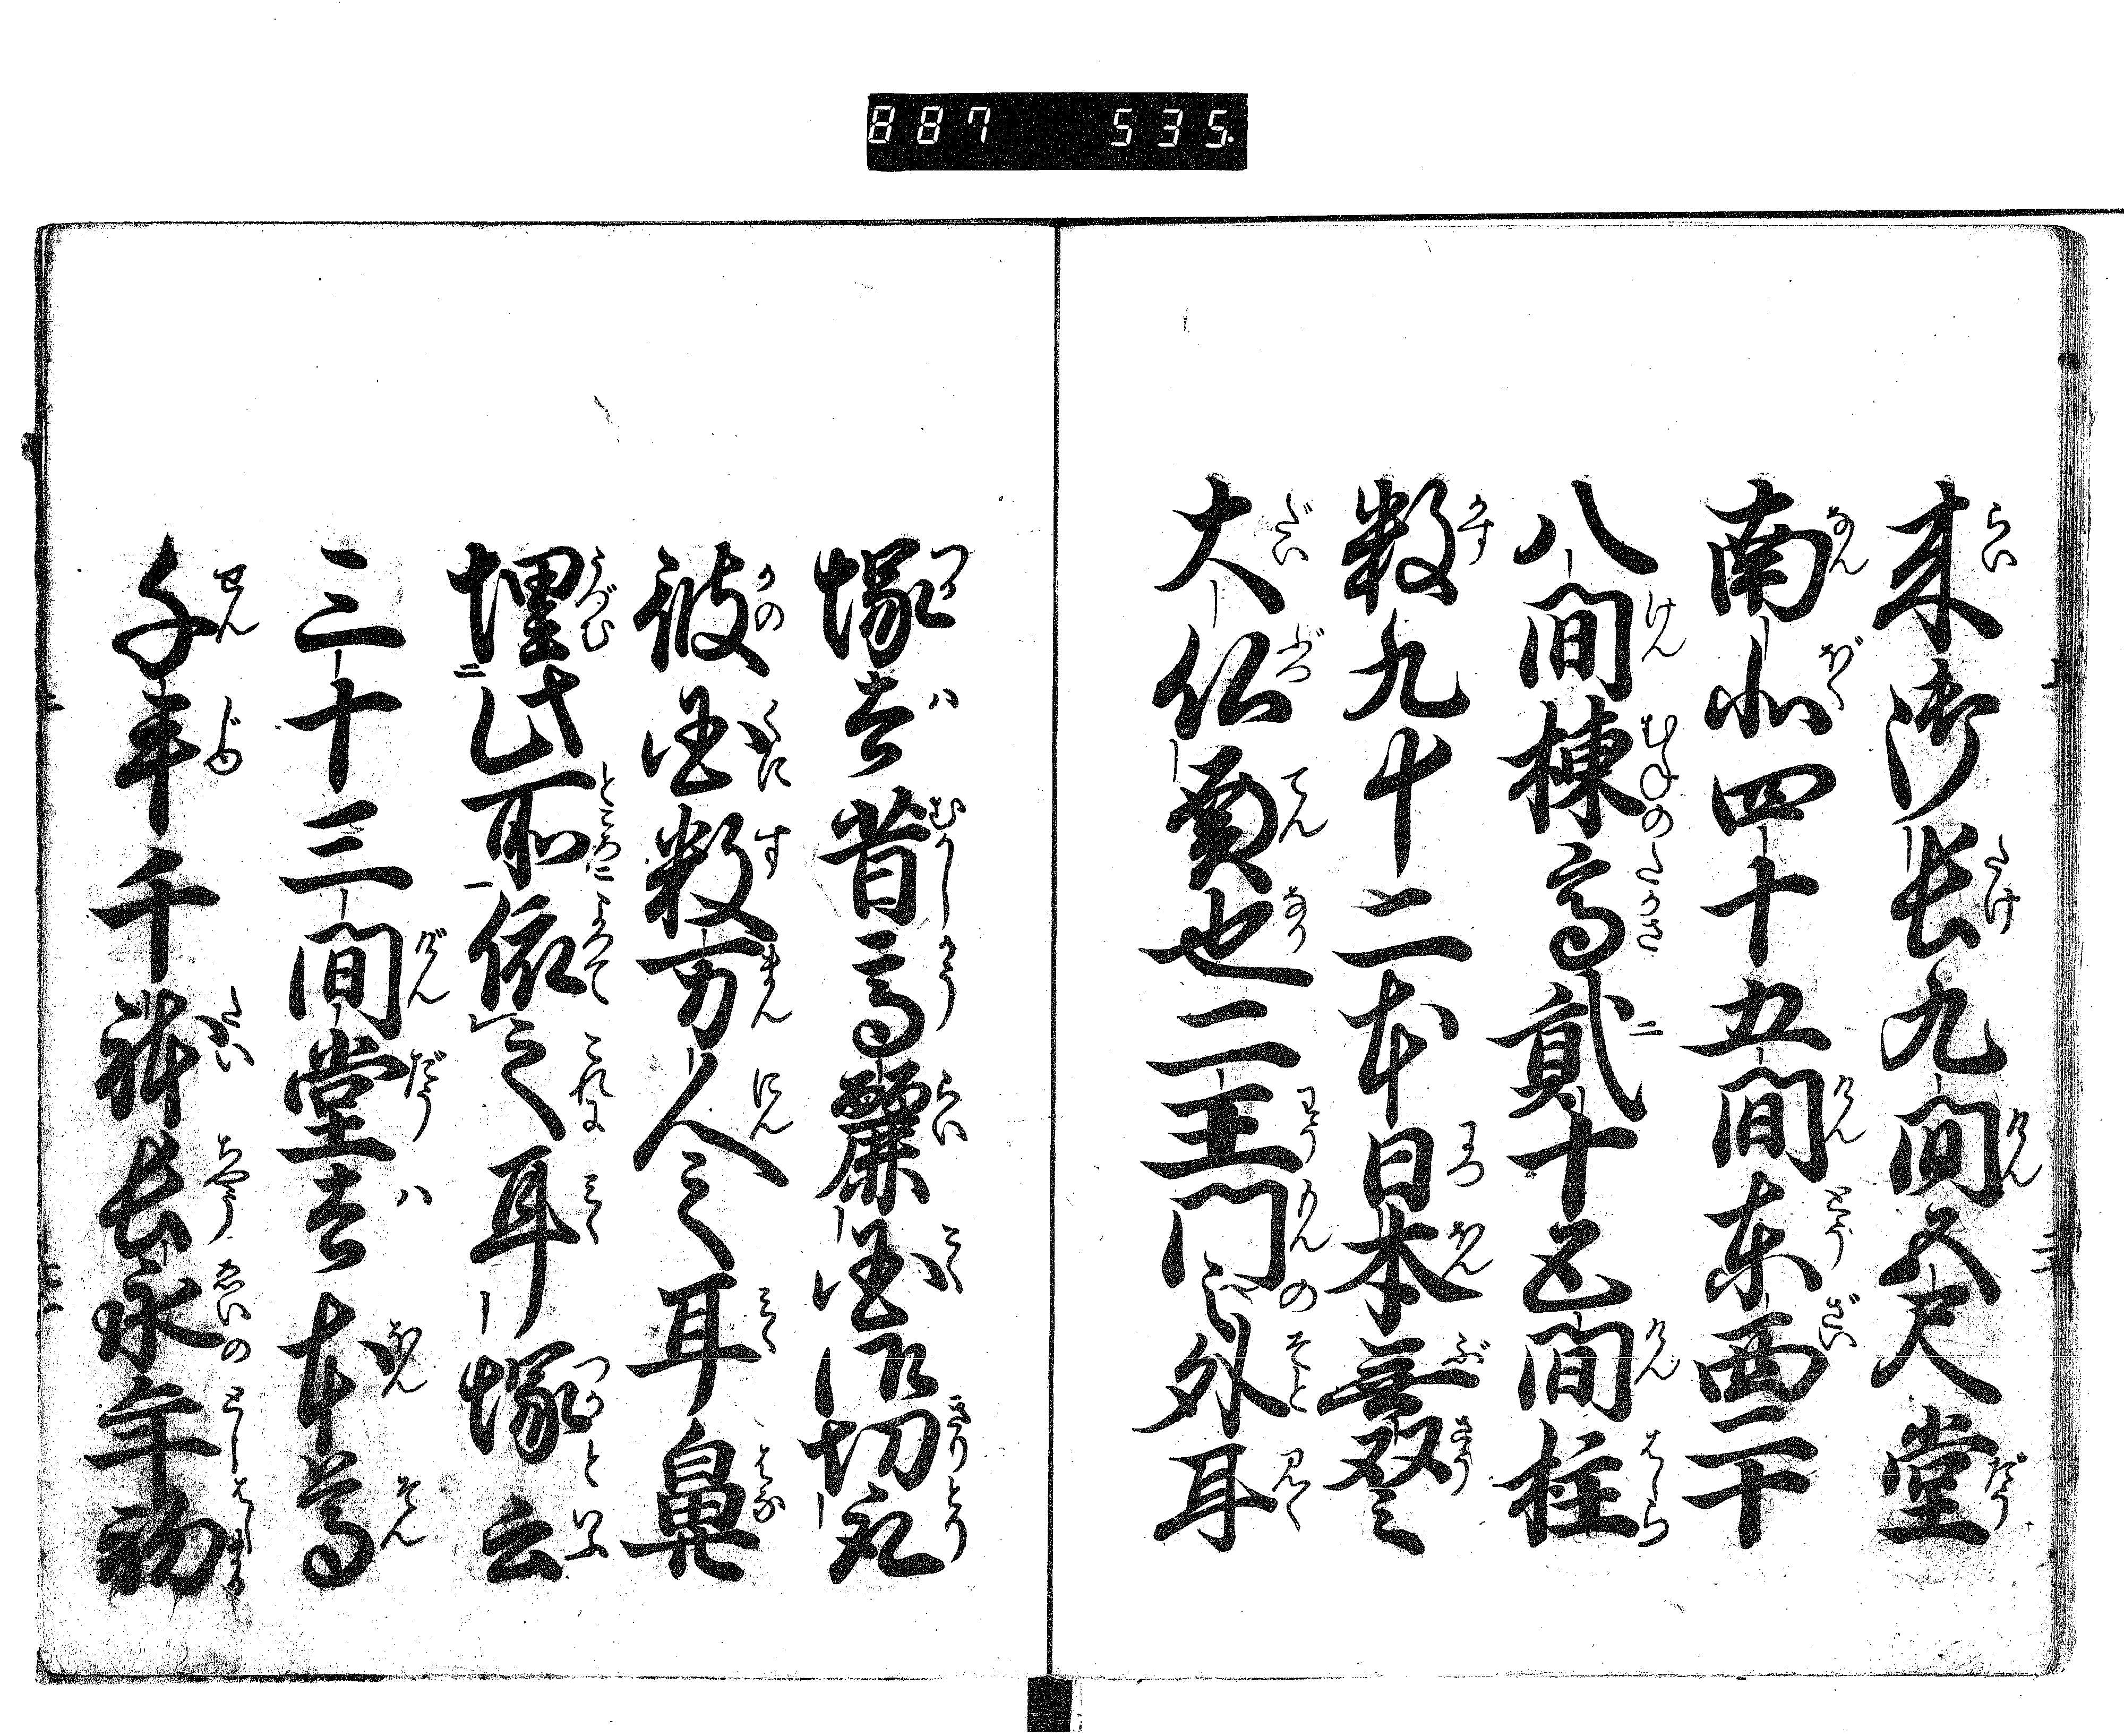 887 535
来御長九間五尺堂
南北四十五間東西二十
八間棟高貳十五間柱
数九十二本日本無双之
大仏殿也二王門之外耳
塚者昔高麗国御切取
彼国数万人之耳鼻
埋此所依之耳塚云
三十三間堂者本尊
千手千躰長永年初